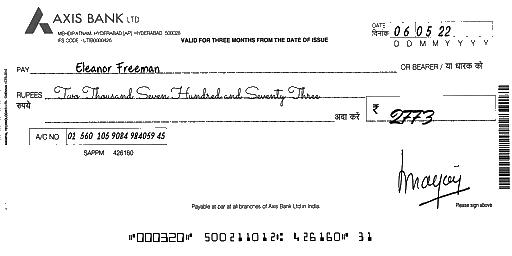 AXIS BANK LTD
MEHDIPATNAM, HYDERABAD [AP] HYDERABAD 500028
IFS CODE - UTIB0000426
VALID FOR THREE MONTHS FROM THE DATE OF ISSUE
DATE दिनांक 06 05 22
D D M M Y Y Y Y
PAY Eleanor Freeman OR BEARER / या धारक को
RUPEES रुपये Two Thousand Seven Hundred and Seventy Three
अदा करें ₹ 2773
A/C NO 01 560 105 9084 984059 45
SAPPM 426160
Payable at par at all branches of Axis Bank Ltd in India.
Please sign above
⑈000320⑈ 500211012⑆ 426160⑈ 31